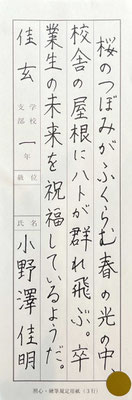 桜のつぼみがふくらむ春の光の中
校舎の屋根にハトが群れ飛ぶ。卒
業生の未来を祝福しているようだ。
佳玄 学校 支部 一年 級位 氏名 小野澤佳明
硬筆規定用紙(3行)